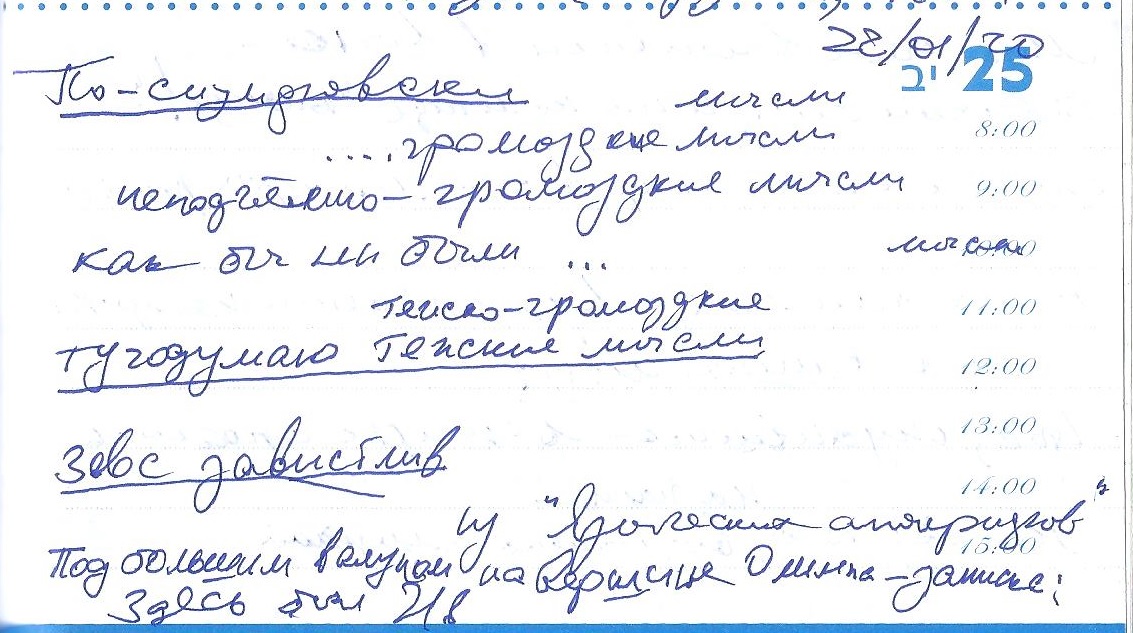 22/01/20
יב 25
По-сизифовски мысли
8:00
....громоздкие мысли
9:00
громоздкие мысли
как бы ни были ... мысли
10:00
громоздкие
11:00
тугодумаю мысли
12:00
13:00
Зевс завистлив
14:00
из "
15:00
Под большим валуном на вершине Олимпа - записка:
Здесь был